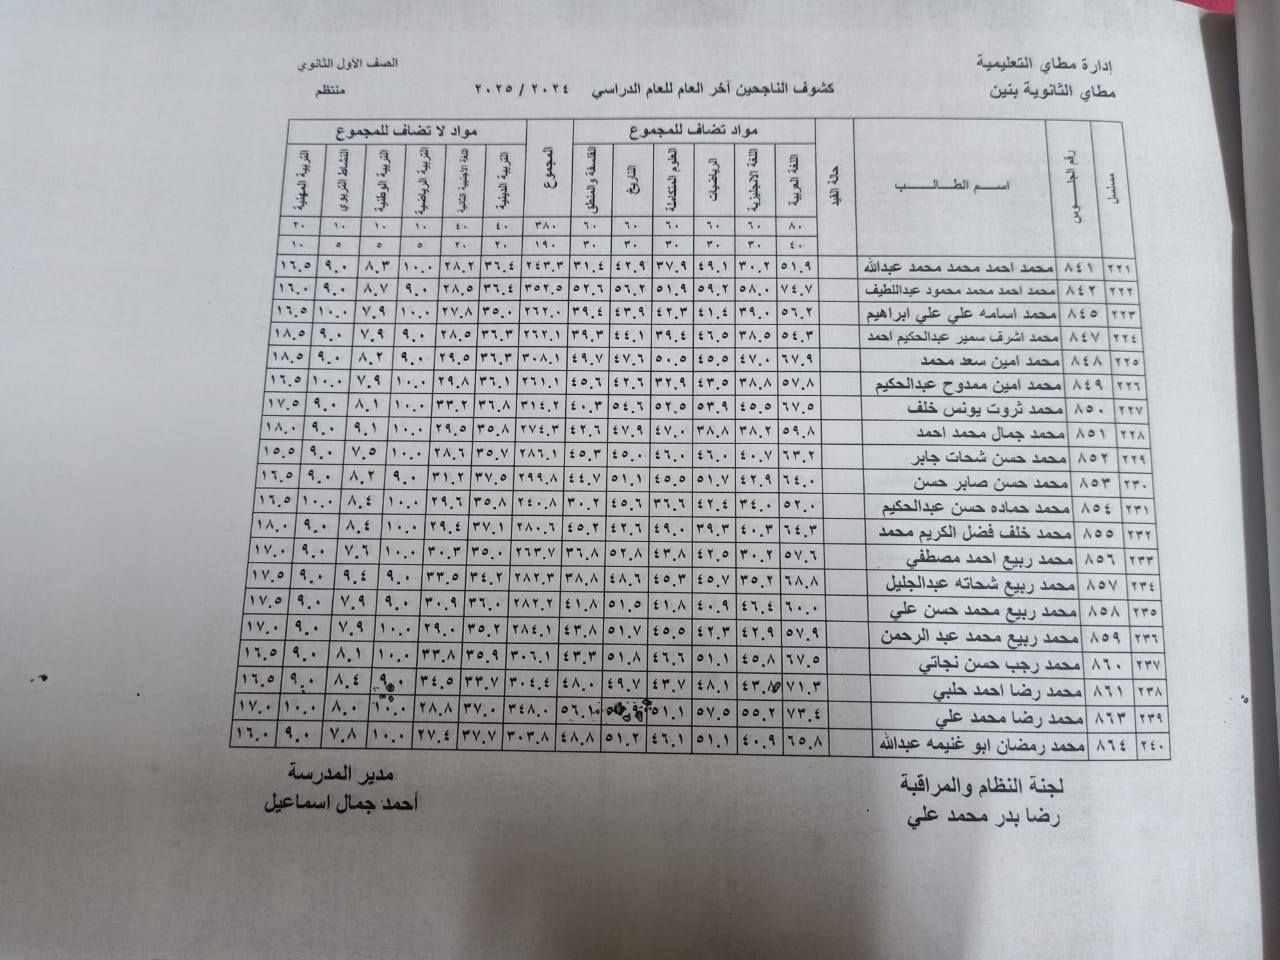 إدارة مطاي التعليمية
الصف الأول الثانوي
مطاي الثانوية بنين
كشوف الناجحين آخر العام للعام الدراسي ٢٠٢٤ / ٢٠٢٥
منتظم
مواد تضاف للمجموع مواد لا تضاف للمجموع
مسلسل رقم الجلوس اسم الطالب حالة القيد اللغة العربية اللغة الانجليزية الرياضيات العلوم المتكاملة التاريخ الفلسفة والمنطق المجموع التربية الدينية اللغة الاجنبية الثانية التربية الرياضية التربية الوطنية النشاط التربوي التربية المهنية
٨٠ ٦٠ ٦٠ ٦٠ ٦٠ ٦٠ ٣٨٠ ٤٠ ٤٠ ١٠ ١٠ ١٠ ٢٠
٤٠ ٣٠ ٣٠ ٣٠ ٣٠ ٣٠ ١٩٠ ٢٠ ٢٠ ٥ ٥ ٥ ١٠
٢٢١ ٨٤١ محمد احمد محمد محمد عبدالله ٥١.٩ ٣٠.٢ ٤٩.١ ٣٧.٩ ٤٢.٩ ٣١.٤ ٢٤٣.٣ ٣٦.٤ ٢٨.٢ ١٠.٠ ٨.٣ ٩.٠ ١٦.٥
٢٢٢ ٨٤٢ محمد احمد محمد محمود عبداللطيف ٧٤.٧ ٥٨.٠ ٥٩.٢ ٥١.٩ ٥٦.٢ ٥٢.٦ ٣٥٢.٥ ٣٦.٤ ٢٨.٥ ٩.٠ ٨.٧ ٩.٠ ١٦.٠
٢٢٣ ٨٤٥ محمد اسامه علي علي ابراهيم ٥٦.٢ ٣٩.٠ ٤١.٤ ٤٢.٣ ٤٣.٩ ٣٩.٤ ٢٦٢.٠ ٣٥.٠ ٢٧.٨ ١٠.٠ ٧.٩ ١٠.٠ ١٦.٥
٢٢٤ ٨٤٧ محمد اشرف سمير عبدالحكيم احمد ٥٤.٣ ٣٨.٥ ٤٦.٥ ٣٩.٤ ٤٤.١ ٣٩.٣ ٢٦٢.١ ٣٦.٣ ٢٨.٥ ٩.٠ ٧.٩ ٩.٠ ١٨.٥
٢٢٥ ٨٤٨ محمد امين سعد محمد ٦٧.٩ ٤٧.٠ ٤٥.٥ ٥٠.٥ ٤٧.٦ ٤٩.٧ ٣٠٨.١ ٣٦.٣ ٢٩.٥ ٩.٠ ٨.٢ ٩.٠ ١٨.٥
٢٢٦ ٨٤٩ محمد امين ممدوح عبدالحكيم ٥٧.٨ ٣٨.٨ ٤٣.٥ ٣٢.٩ ٤٢.٦ ٤٥.٦ ٢٦١.١ ٣٦.١ ٢٩.٨ ١٠.٠ ٧.٩ ١٠.٠ ١٦.٥
٢٢٧ ٨٥٠ محمد ثروت يونس خلف ٦٧.٥ ٤٥.٥ ٥٣.٩ ٥٢.٥ ٥٤.٦ ٤٠.٣ ٣١٤.٢ ٣٦.٨ ٣٣.٢ ١٠.٠ ٨.١ ٩.٠ ١٧.٥
٢٢٨ ٨٥١ محمد جمال محمد احمد ٥٩.٨ ٣٨.٢ ٣٨.٨ ٤٧.٠ ٤٧.٩ ٤٢.٦ ٢٧٤.٣ ٣٥.٨ ٢٩.٥ ١٠.٠ ٩.١ ٩.٠ ١٨.٠
٢٢٩ ٨٥٢ محمد حسن شحات جابر ٦٣.٢ ٤٠.٧ ٤٦.٠ ٤٦.٠ ٤٥.٠ ٤٥.٣ ٢٨٦.١ ٣٥.٧ ٢٨.٦ ١٠.٠ ٧.٥ ٩.٠ ١٥.٥
٢٣٠ ٨٥٣ محمد حسن صابر حسن ٦٤.٠ ٤٢.٩ ٥١.٧ ٤٥.٥ ٥١.١ ٤٤.٧ ٢٩٩.٨ ٣٧.٥ ٣١.٢ ٩.٠ ٨.٢ ٩.٠ ١٦.٥
٢٣١ ٨٥٤ محمد حماده حسن عبدالحكيم ٥٢.٠ ٣٤.٠ ٤٢.٤ ٣٦.٦ ٤٥.٦ ٣٠.٢ ٢٤٠.٨ ٣٥.٨ ٢٩.٦ ١٠.٠ ٨.٤ ١٠.٠ ١٦.٥
٢٣٢ ٨٥٥ محمد خلف فضل الكريم محمد ٦٤.٣ ٤٠.٣ ٣٩.٣ ٤٩.٠ ٤٢.٦ ٤٥.٢ ٢٨٠.٦ ٣٧.١ ٢٩.٤ ١٠.٠ ٨.٤ ٩.٠ ١٨.٠
٢٣٣ ٨٥٦ محمد ربيع احمد مصطفي ٥٧.٦ ٣٠.٢ ٤٢.٥ ٤٣.٨ ٥٢.٨ ٣٦.٨ ٢٦٣.٧ ٣٥.٠ ٣٠.٣ ١٠.٠ ٧.٦ ٩.٠ ١٧.٠
٢٣٤ ٨٥٧ محمد ربيع شحاته عبدالجليل ٦٨.٨ ٣٥.٢ ٤٥.٧ ٤٥.٣ ٤٨.٦ ٣٨.٨ ٢٨٢.٣ ٣٤.٢ ٣٣.٥ ٩.٠ ٩.٤ ٩.٠ ١٧.٥
٢٣٥ ٨٥٨ محمد ربيع محمد حسن علي ٦٠.٠ ٤٦.٤ ٤٠.٩ ٤١.٨ ٥١.٥ ٤١.٨ ٢٨٢.٢ ٣٦.٠ ٣٠.٩ ٩.٠ ٧.٩ ٩.٠ ١٧.٥
٢٣٦ ٨٥٩ محمد ربيع محمد عبد الرحمن ٥٧.٩ ٤٢.٩ ٤٢.٣ ٤٥.٥ ٥١.٧ ٤٣.٨ ٢٨٤.١ ٣٥.٢ ٢٩.٠ ١٠.٠ ٧.٩ ٩.٠ ١٧.٠
٢٣٧ ٨٦٠ محمد رجب حسن نجاتي ٦٧.٥ ٤٥.٨ ٥١.١ ٤٦.٦ ٥١.٨ ٤٣.٣ ٣٠٦.١ ٣٥.٩ ٣٣.٨ ١٠.٠ ٨.١ ٩.٠ ١٦.٥
٢٣٨ ٨٦١ محمد رضا احمد حلبي ٧١.٣ ٤٣.٨ ٤٨.١ ٤٣.٧ ٤٩.٧ ٤٨.٠ ٣٠٤.٤ ٣٣.٧ ٣٤.٥ ٩.٠ ٨.٤ ٩.٠ ١٦.٥
٢٣٩ ٨٦٣ محمد رضا محمد علي ٧٣.٤ ٥٥.٢ ٥٧.٥ ٥١.١ ٥٦.١ ٣٤٨.٠ ٣٧.٠ ٢٨.٨ ١٠.٠ ٨.٠ ١٠.٠ ١٧.٠
٢٤٠ ٨٦٤ محمد رمضان ابو غنيمه عبدالله ٦٥.٨ ٤٠.٩ ٥١.١ ٤٦.١ ٥١.٢ ٤٨.٨ ٣٠٣.٨ ٣٧.٧ ٢٧.٤ ١٠.٠ ٧.٨ ٩.٠ ١٦.٠
لجنة النظام والمراقبة
مدير المدرسة
رضا بدر محمد علي
أحمد جمال اسماعيل